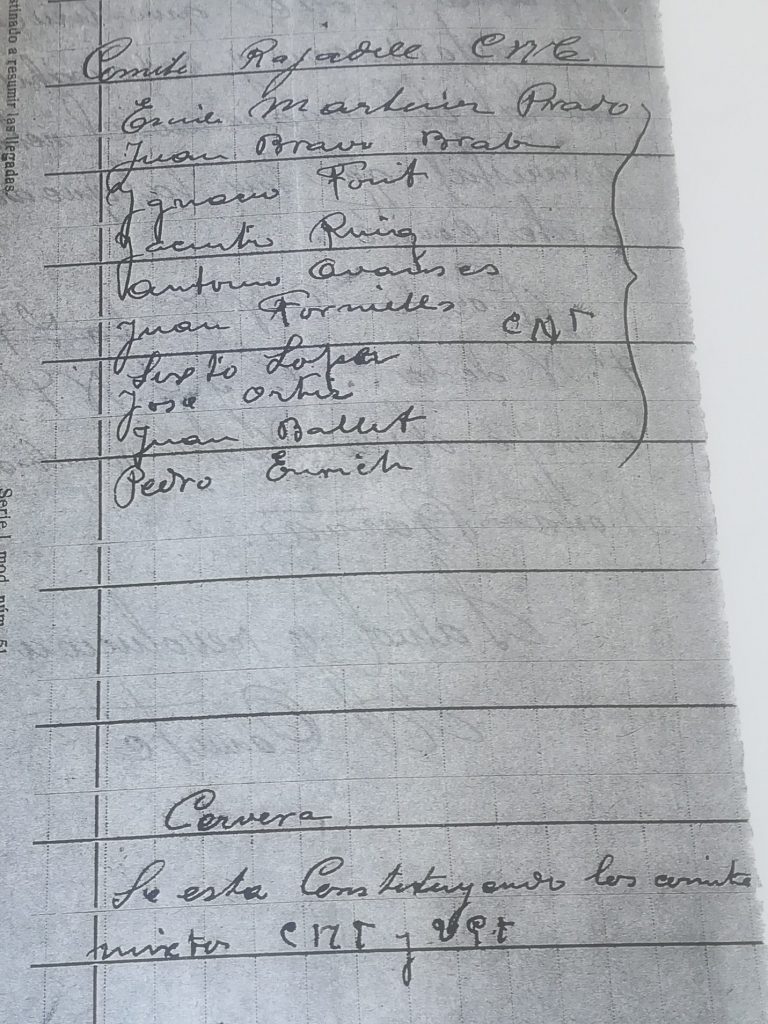 Comite Rajadell CNT
Martinez Prado
Juan Bravo
Ygnacio Font
Jacinto Ruiz
Antonio
Juan Fornieles
CNT
Sixto Lopez
Jose Ortiz
Juan Ballet
Pedro Enrich
Cervera
Se esta Constituyendo los comite
mixtos CNT y UGT
stinado a resumir las llegadas.
Serie I mod. núm. 51